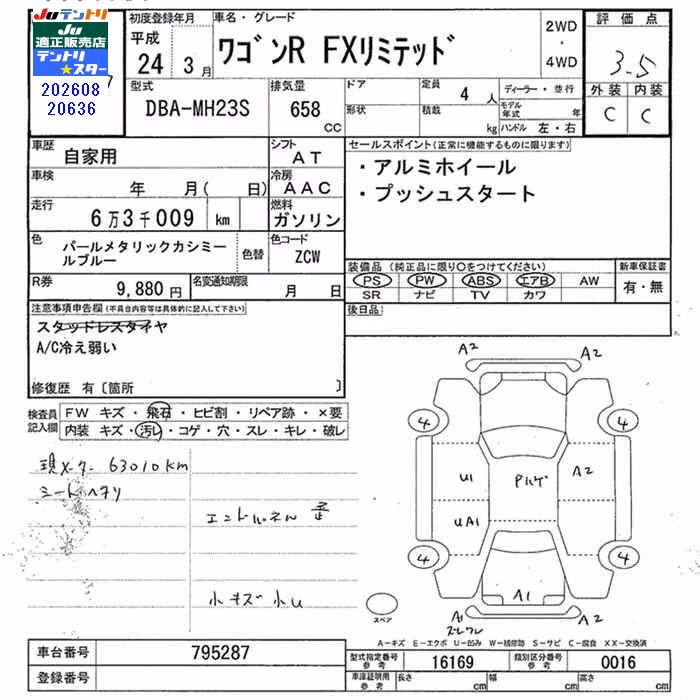 Juテントリ
Ju
適正販売店
テントリ
★スター
202608
20636
初度登録年月
平成
24 3月
車名・グレード
ワゴンR FXリミテッド
2WD
・
4WD
評価点
3.5
外装 内装
C C
型式
DBA-MH23S
排気量
658
CC
ドア
形状
定員
4 人
積載
kg
ディーラー・並行
モデル年式 年
ハンドル 左・右
車歴
自家用
シフト
AT
車検
年 月( 日)
冷房
AAC
走行
6万3千009 km
燃料
ガソリン
色
パールメタリックカシミールブルー
色替
色コード
ZCW
R券
9,880 円
名変通知期限
月 日
セールスポイント(正常に機能するものに限ります)
・アルミホイール
・プッシュスタート
装備品(純正品に限り○をつけてください)
PS PW ABS エアB AW
SR ナビ TV カワ
新車保証書
有・無
後日品
注意事項申告欄(不具合内容等は具体的に記入して下さい)
スタッドレスタイヤ
A/C冷え弱い
修復歴 有〔箇所 〕
検査員記入欄
FW キズ・飛石・ヒビ割・リペア跡・×要
内装 キズ・汚レ・コゲ・穴・スレ・キレ・破レ
現メーター 63010km
シートヘタリ
エンドパネル 歪
小キズ小U
A2
A2
4
4
U1
Pルーフ
A2
UA1
4
4
A1
A1
A2
スペア
A-キズ E-エクボ U-凹み W-補修跡 S-サビ C-腐食 XX-交換済
車台番号
795287
登録番号
型式指定番号
参考
16169
類別区分番号
参考
0016
車庫証明用
参考
長さ cm
幅 cm
高さ cm